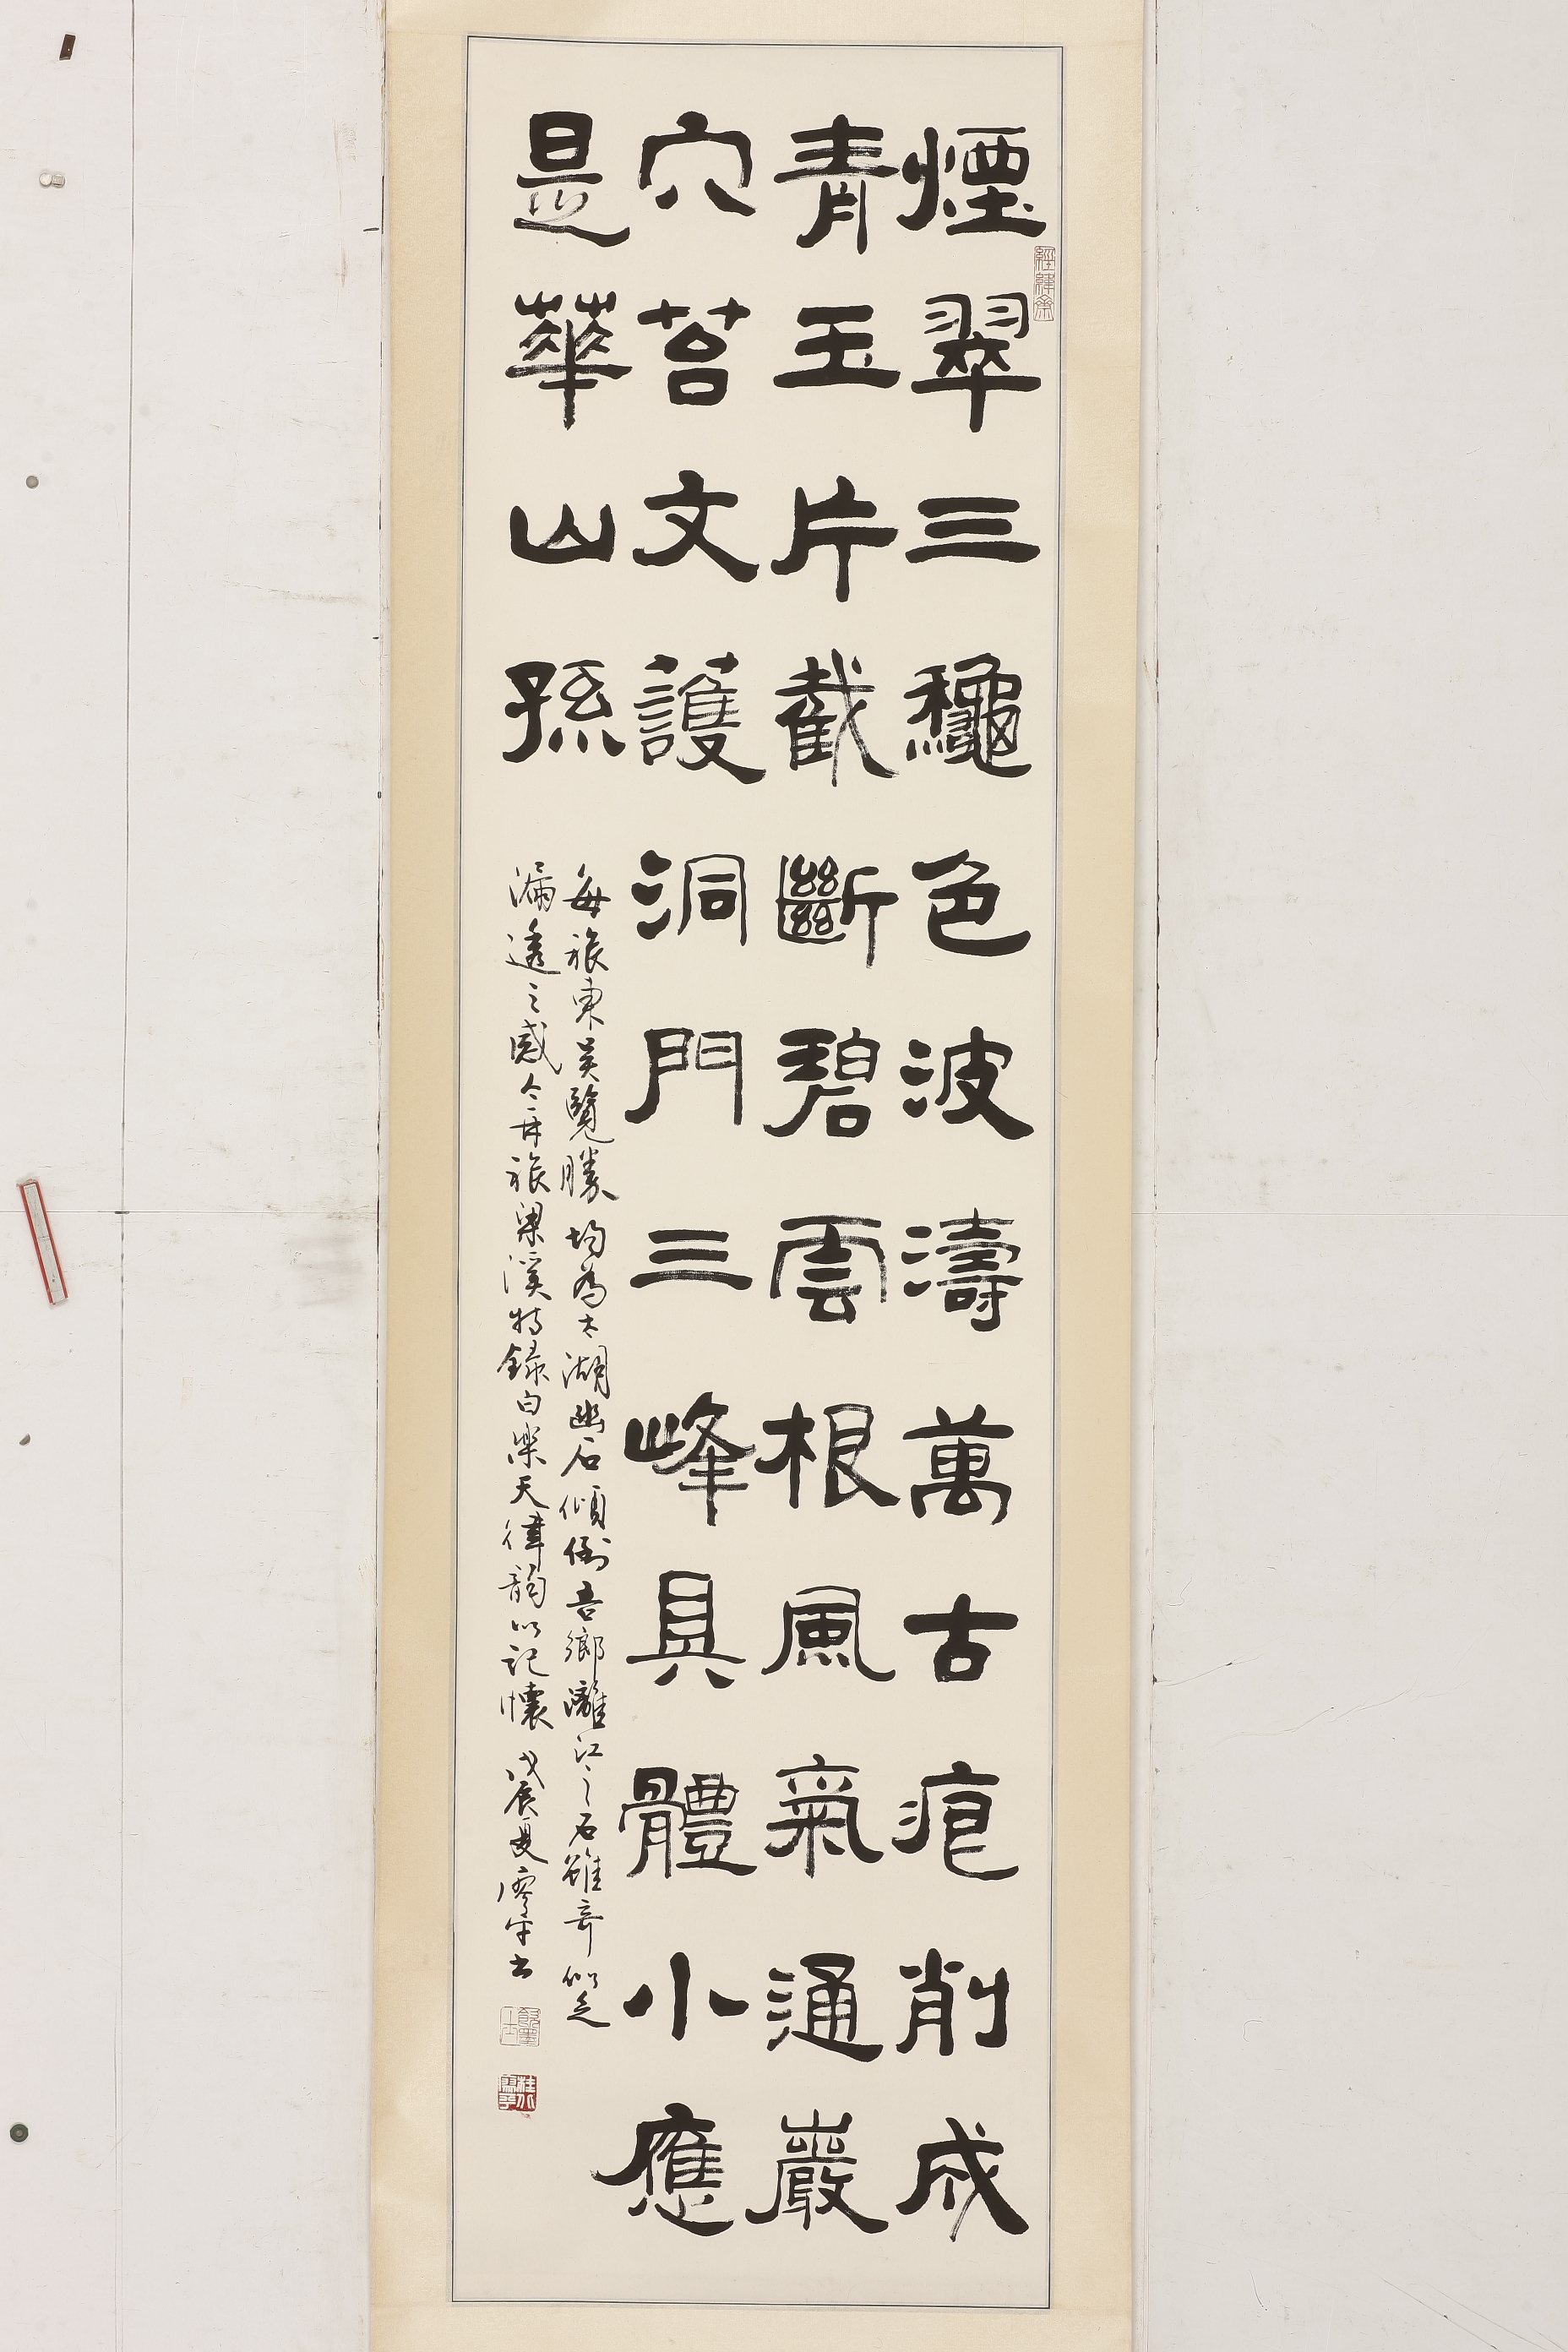 煙翠三龝色波濤萬古痕削成
青玉片截斷碧雲根風氣通巖
穴苔文護洞門三峰具體小應
是華山孫
每旅東吳覽勝均為太湖幽石傾倒吾鄉灕江之石雖奇似乏
漏透之感今再旅梁溪特錄白樂天律韻以記懷 戊辰夏廖宇書